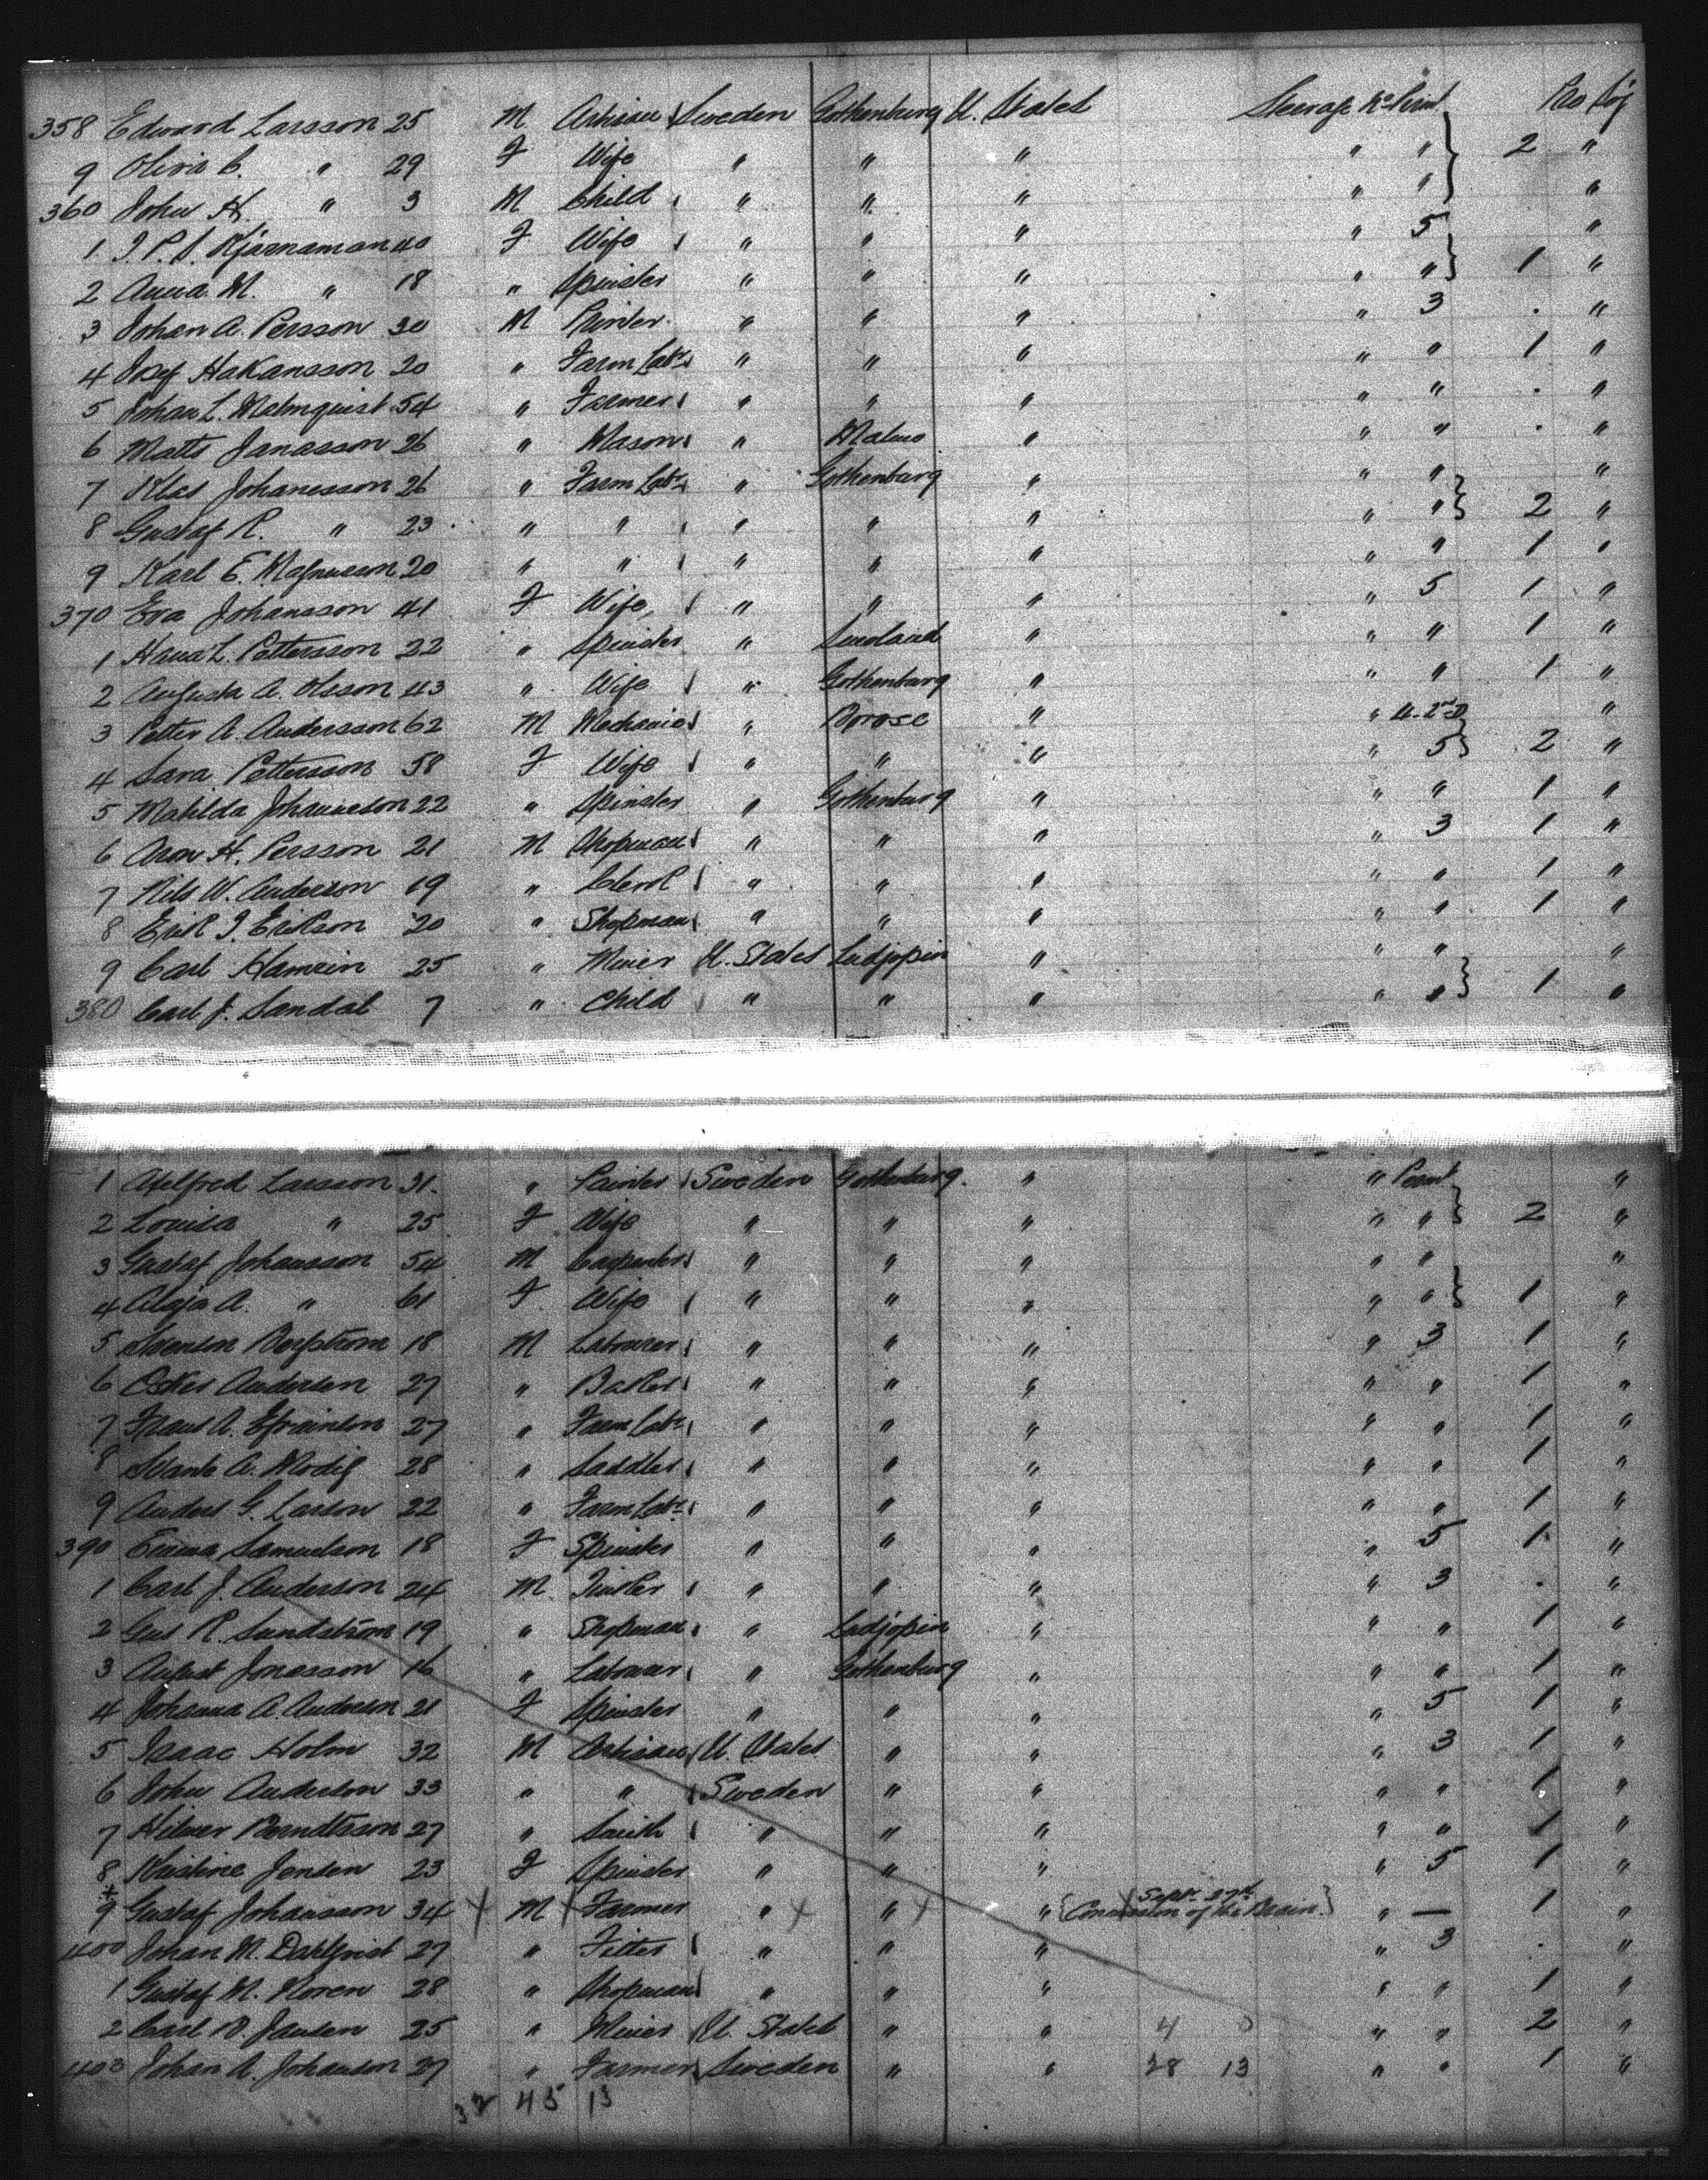 358 Edward Larsson 25 M Artisan Sweden Gothenburg U. States Steerage Pro Soj
9 Olivia C. " 29 F Wife " " " " " 2 "
360 John H. " 3 M Child " " " " " "
1 Kjarnaman 40 F Wife " " " " 5 "
2 Anna M. " 18 " Spinster " " " " " 1 "
3 Johan A. Persson 30 M Printer " " " " 3 . "
4 Josef Hakansson 20 " Farm Labr " " " " " 1 "
5 Johan L. Malmquist 54 " Farmer " " " " " . "
6 Matts Janasson 26 " Mason " Malmo " " " . "
7 Klas Johanesson 26 " Farm Labr " Gothenburg " " " "
8 Gustaf R. " 23 " " " " " " " 2 "
9 Karl E. Magnusson 20 " " " " " " " 1 "
370 Eva Johansson 41 F Wife " " " " 5 1 "
1 Hana L. Pettersson 22 " Spinster " Smoland " " " 1 "
2 Augusta A. Olsson 43 " Wife " Gothenburg " " " 1 "
3 Petter A. Andersson 62 M Mechanic " Borose " " "
4 Sara Pettersson 58 F Wife " " " " 5 2 "
5 Matilda Johanneson 22 " Spinster " Gothenburg " " " 1 "
6 Aron H. Persson 21 M Shopman " " " " 3 1 "
7 Nils W. Anderson 19 " Clerk " " " " " 1 "
8 Erik J. Erikson 20 " Shopman " " " " " 1 "
9 Carl Hamrin 25 " Miner U. States Lidjopin " " " "
380 Carl J. Sandal 7 " Child " " " " " 1 "
1 Axelfred Larsson 31 " Painter Sweden Gothenburg " " "
2 Louisa " 25 F Wife " " " " " 2 "
3 Gustaf Johansson 54 M Carpenter " " " " " "
4 A. " 61 F Wife " " " " " 1 "
5 Bergstrom 18 M Labourer " " " " 3 1 "
6 Oskar Andersen 27 " Baker " " " " " 1 "
7 Frans A. Efraimson 27 " Farm Labr " " " " " 1 "
8 Svante A. Modig 28 " Saddler " " " " " 1 "
9 Anders G. Larson 22 " Farm Labr " " " " " 1 "
390 Emma Samuelson 18 F Spinster " " " " 5 1 "
1 Carl J. Anderson 24 M Tinker " " " " 3 . "
2 Gus R. Sundström 19 " Shopman " Lidjopin " " " 1 "
3 August Jonasson 16 " Labourer " Gothenburg " " " 1 "
4 Johanna A. Anderson 21 F Spinster " " " " 5 1 "
5 Isaac Holm 32 M Artisan U. States " " " 3 1 "
6 John Anderson 33 " " Sweden " " " " 1 "
7 Hilmer Berndtsson 27 " Smith " " " " " 1 "
8 Kristine Jensen 23 F Spinster " " " " 5 1 "
9 Gustaf Johansson 34 X M X Farmer " X " X " { Sept. 27th Concussion of the Brain } " — 1 "
400 Johan M. Dahlquist 27 " Fitter " " " " 3 . "
1 Gustaf M. Noren 28 " Shopman " " " " " 1 "
2 Carl Jansen 25 " Miner U. States " " 4 0 " " 2 "
403 Johan A. Johanson 27 " Farmer Sweden " " 28 13 " " 1 "
32 45 13